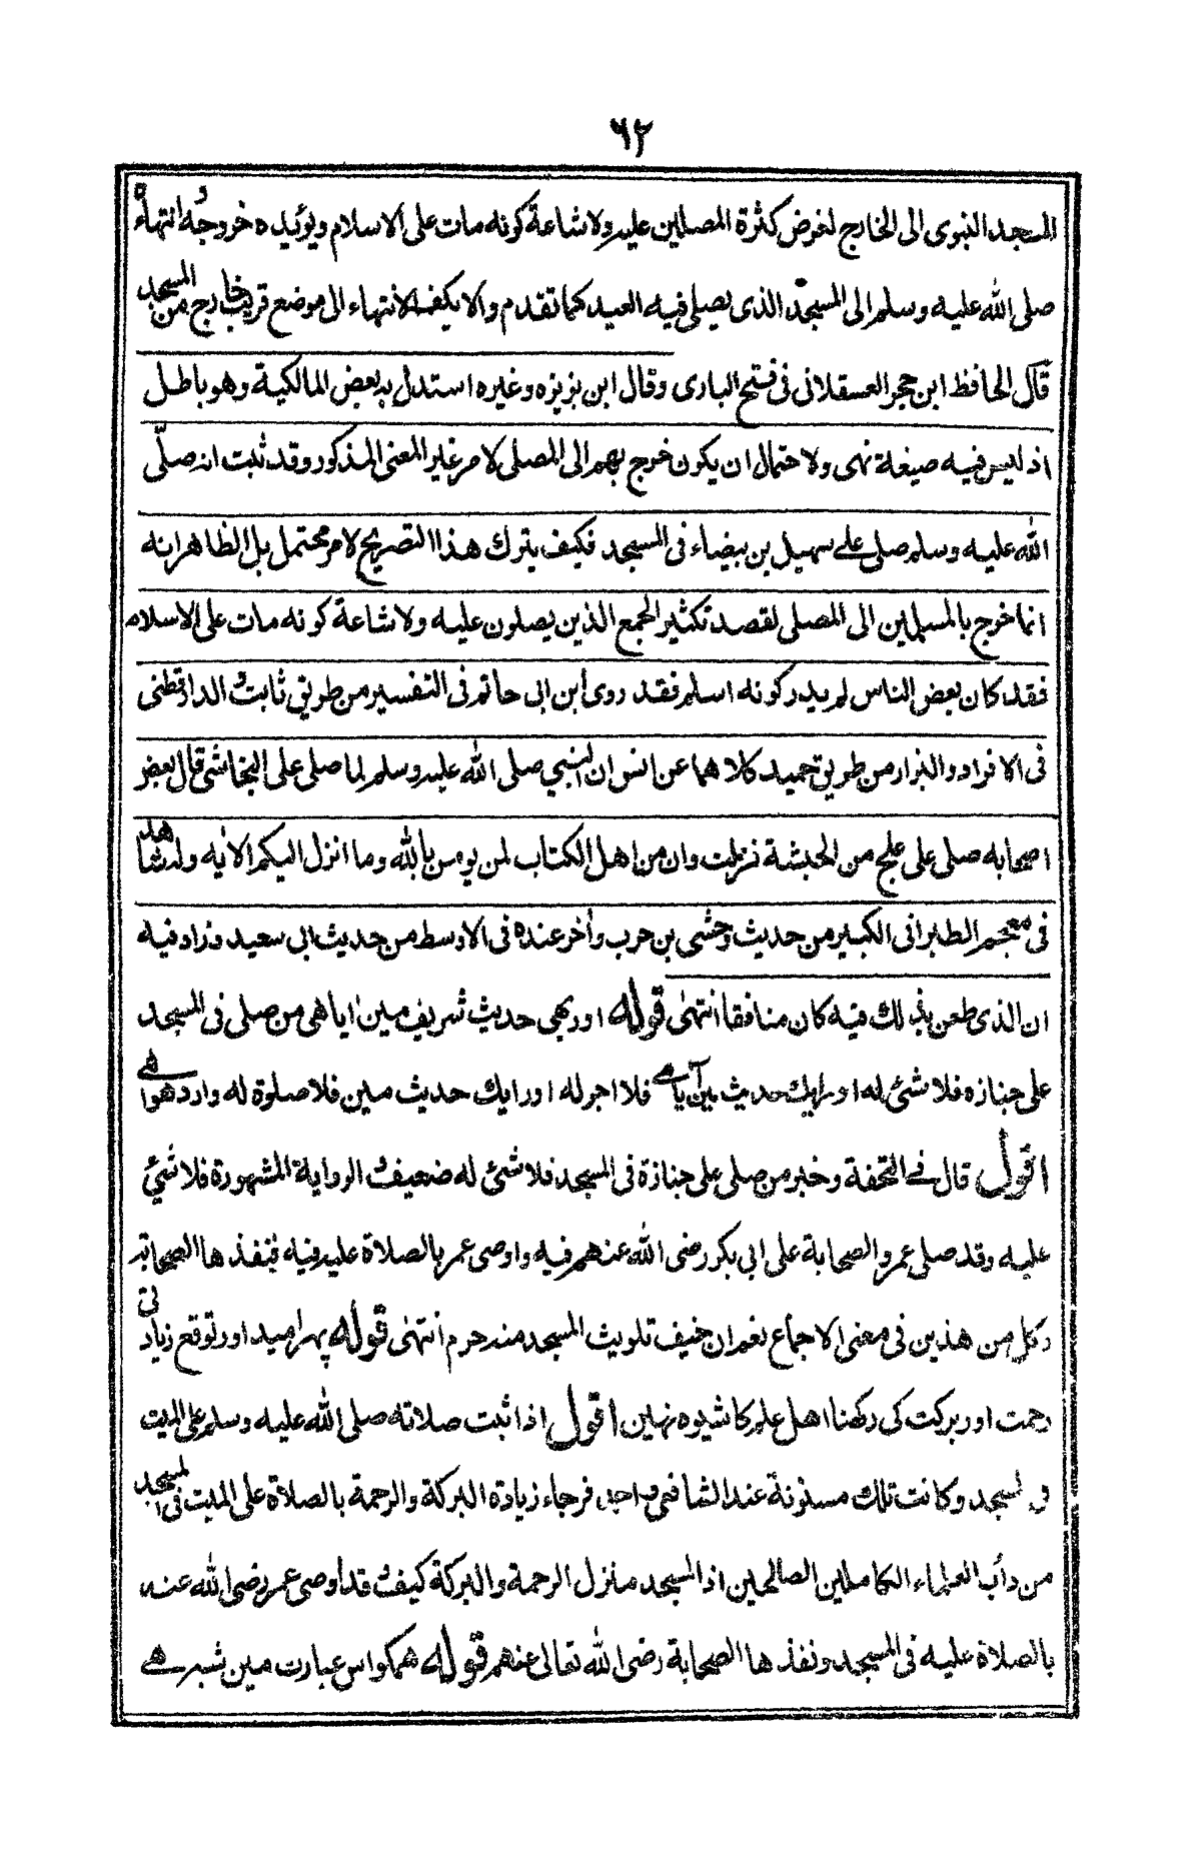 ٦٢
المسجد النبوى الى الخارج لغرض كثرة المصلين عليه ولاشاعة كونه مات على الاسلام ويؤيده خروجه انتهاءً
صلى الله عليه وسلم الى المسجد الذى يصلى فيه العيد كما تقدم والا يكف الانتهاء الى موضع قريب خارج من المسجد
قال الحافظ ابن حجر العسقلانى فى فتح البارى وقال ابن بزيزه وغيره استدل به بعض المالكية وهو باطل
اذ ليس فيه صيغة نهى ولاحتمال ان يكون خرج بهم الى المصلى لامر غير المعنى المذكور وقد ثبت انه صلّى
الله عليه وسلم صلى على سهيل بن بيضاء فى المسجد فكيف يترك هذا التصريح لامر محتمل بل الظاهر انه
انما خرج بالمسلمين الى المصلى لقصد تكثير الجمع الذين يصلون عليه ولاشاعة كونه مات على الاسلام
فقد كان بعض الناس لم يدر كونه اسلم فقد روى ابن ابى حاتم فى التفسير من طريق ثابت والدارقطنى
فى الافراد والبزار من طريق حميد كلاهما عن انس ان النبي صلى الله عليه وسلم لما صلى على النجاشى قال بعض
اصحابه صلى على علج من الحبشة نزلت وان من اهل الكتاب لمن يومن بالله وما انزل اليكم الايه وله شاهد
فى معجم الطبرانى الكبير من حديث وحشى بن حرب وأخر عنده فى الاوسط من حديث ابى سعيد وزاد فيه
ان الذى طعن بذلك فيه كان منافقا انتهى قوله اور بهى حديث شريف مين آيا هى من صلى فى المسجد
على جنازه فلا شئ له اور ايك حديث مين آيا هے فلا اجر له اور ايك حديث مين فلا صلوة له وارد هوا هے
اقول قال فے التحفة وخبر من صلى على جنازة فى المسجد فلا شئ له ضعيف والرواية المشهورة فلا شئ
عليه وقد صلى عمر والصحابة على ابي بكر رضى الله عنهم فيه واوصى عمر بالصلاة عليه فيه فنفذها الصحابة
وكل من هذين فى معنى الاجماع نعم ان خيف تلويث المسجد منه حرم انتهى قوله پهر اميد اور توقع زيادتى
رحمت اور بركت كى ركهنا اهل علم كا شيوه نهين اقول اذا ثبت صلاته صلى الله عليه وسلم على الميت
فى المسجد وكانت تلك مسنونة عند الشافعى واحمد فرجاء زيادة البركة والرحمة بالصلاة على الميت فى المسجد
من دأب العلماء الكاملين الصالحين اذ المسجد منزل الرحمة والبركة كيف وقد اوصى عمر رضى الله عنه
بالصلاة عليه فى المسجد ونفذها الصحابة رضى الله تعالى عنهم قوله همكو اس عبارت مين شبر هے